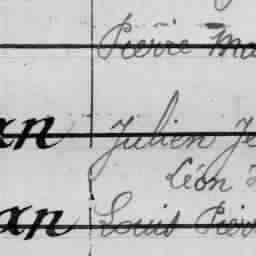 Pierre Ma
an Julien Je
Léon
an Louis Pierr